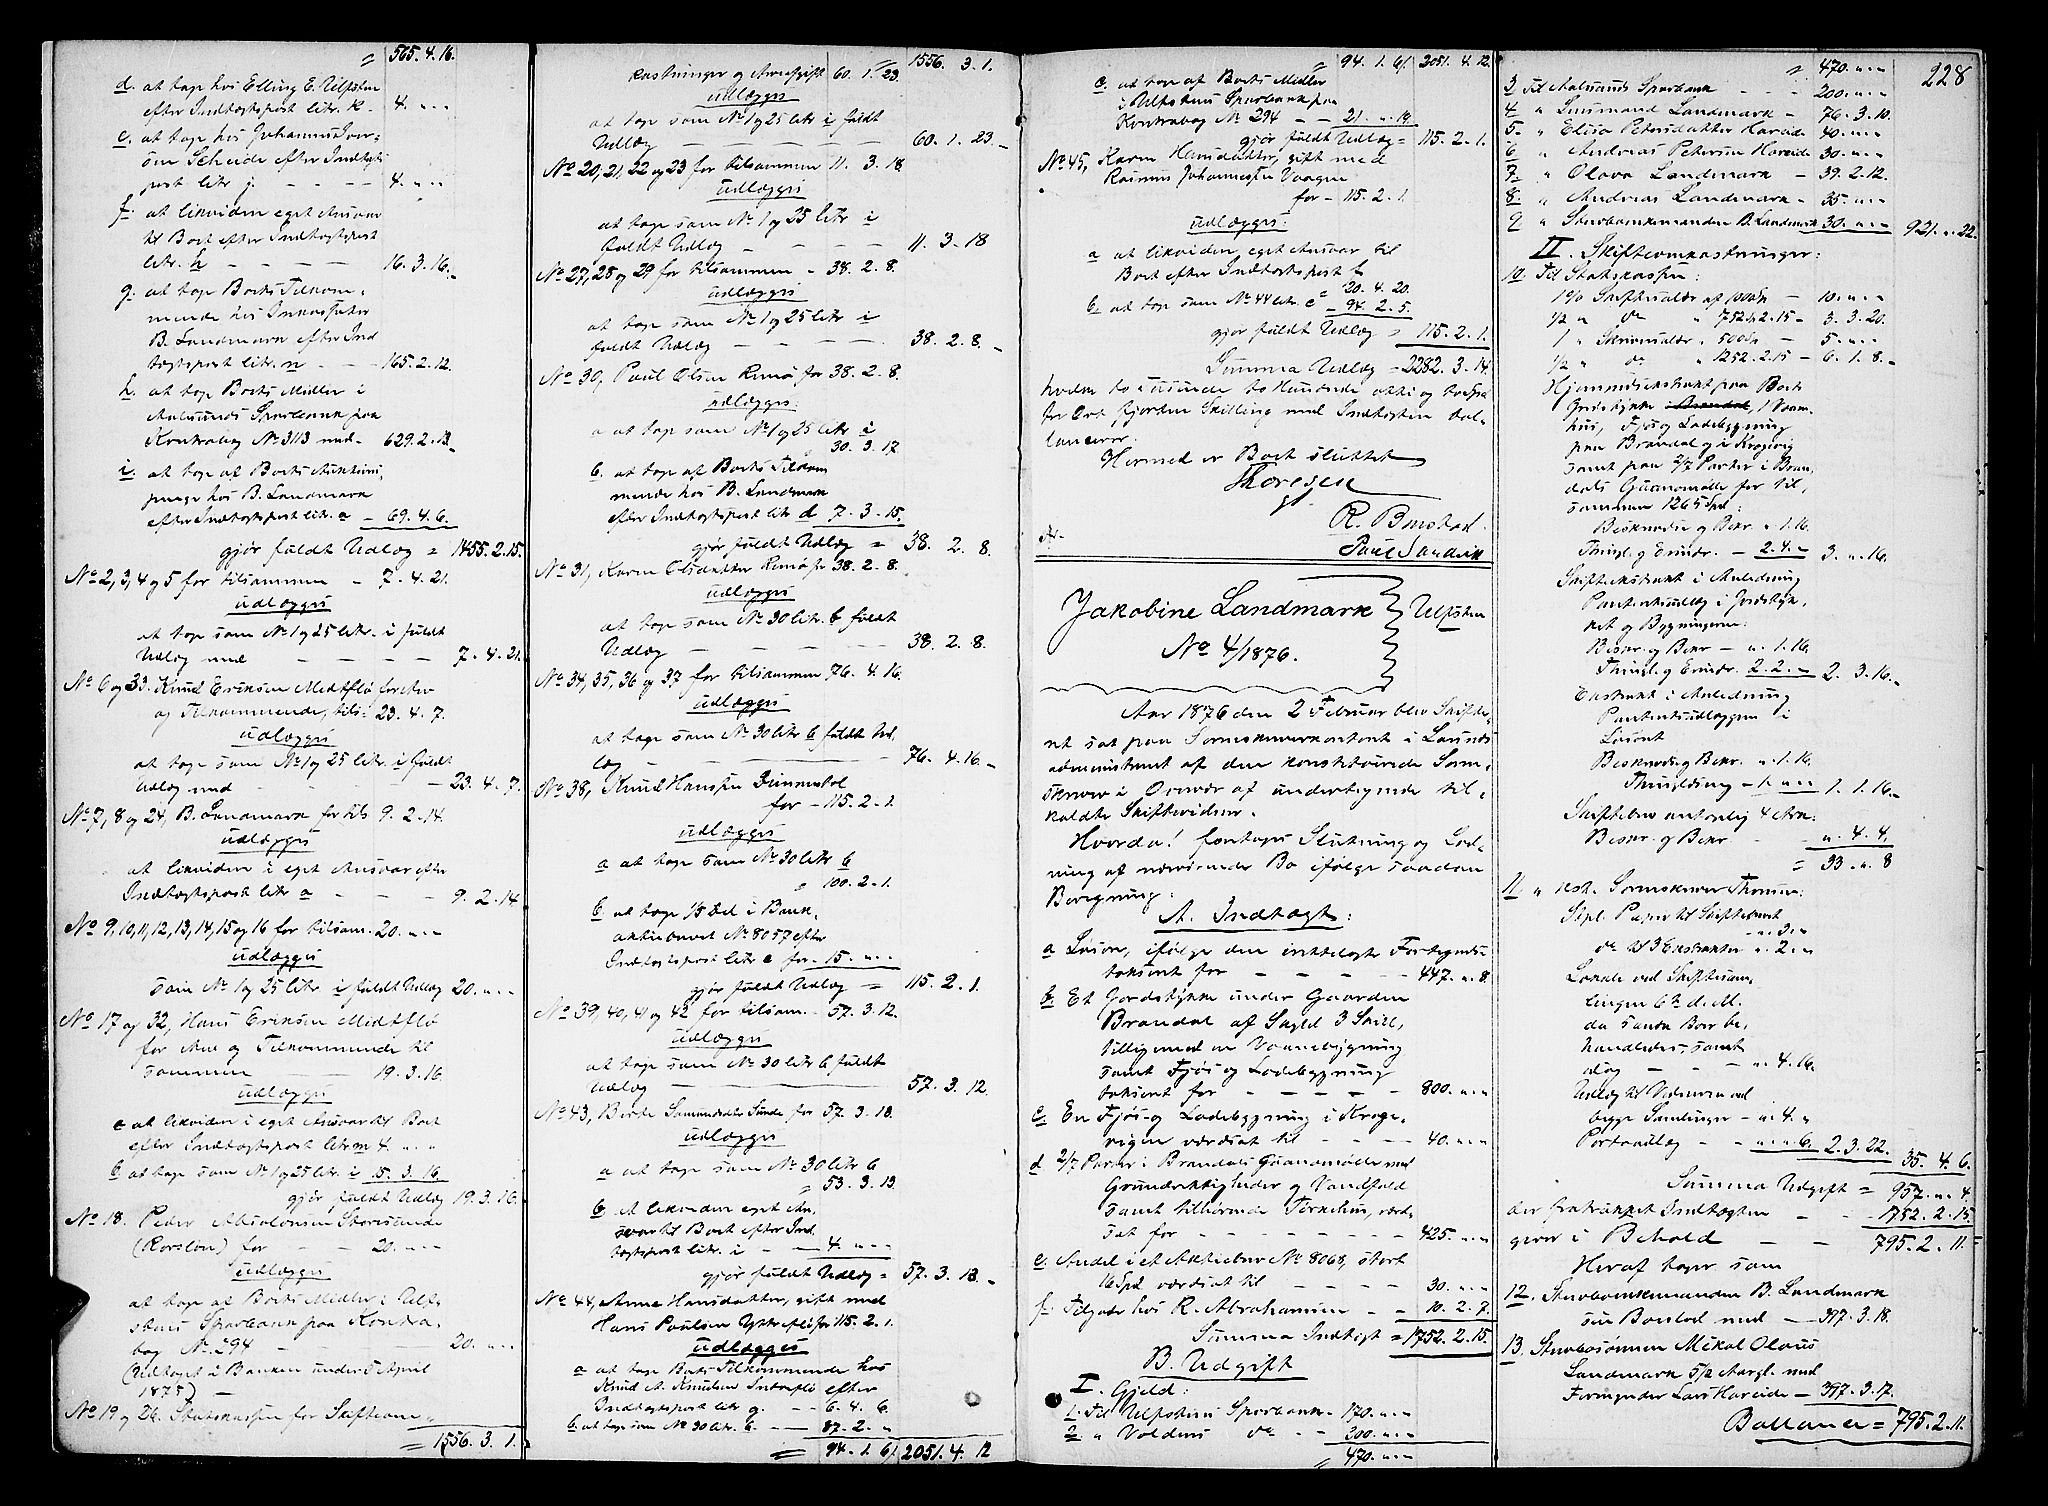 = 565. 4. 16.
d. at tage hos Elling E. Ulfsten
efter Indtægtspost litr. k - 4. " "
e. at tage hos Johannes Iver-
sen Scheide efter Indtægts
post litr. j. - - - 4. " "
f. at likvidere eget Ansvar
til Boet efter Indtægtspost
litr. h - - - - 16. 3. 16.
g. at tage Boets Tilkom-
mende hos Inkassator
B. Landmark efter Ind
tægtspost litr. n - - 165. 2. 12.
h. at tage Boets Midler i
Aalesunds Sparbank paa
Kontrabog No 3113 med - 629. 2. 13.
i. at tage af Boets Auktions
penge hos B. Landmark
efter Indtægtspost litr. a - 69. 4. 6.
gjør fuldt Udlæg = 1455. 2. 15.
No 2, 3, 4 og 5 for tilsammen - 7. 4. 21.
udlægges
at tage som No 1 og 25 litr. i fuldt
Udlæg med - - - - 7. 4. 21.
No 6 og 33. Knud Eriksen Midtflø for Arv
og Tilkommende, tils: 23. 4. 7.
udlægges
at tage som No 1 og 25 litr. i fuldt
Udlæg med - - - 23. 4. 7.
No 7, 8 og 24, B. Landmark for tils 9. 2. 14.
udlægges
at likvidere i eget Ansvar efter
Indtægtspost litr a - - - - 9. 2. 14
No 9, 10, 11, 12, 13, 14, 15 og 16 for tilsam. 20. " "
udlægges
som No 1 og 25 litr. i fuldt Udlæg 20. " "
No 17 og 32, Hans Eriksen Midtflø
for Arv og Tilkommende til
sammen 19. 3. 16.
udlægges
a at likvidere i eget Ansvar til Boet
efter Indtægtspost litr. m 4. " "
b. at tage som No 1 og 25 litr. i 15. 3. 16.
gjør fuldt Udlæg 19. 3. 16.
No 18. Peder Absalonsen Storesunde
(Korsløn) for - - 20. " "
udlægges
at tage af Boets Midler i Ulf-
stens Sparbank paa Kontra-
bog No. 294 - - - - 20. " "
(Udtaget i Banken under 5 April
1875) -
No 19 og 26. Statskassen for Skifteom-
= 1556. 3. 1.
= 1556. 3. 1.
kostninger og Arveafgift 60. 1. 23
udlægges
at tage som No 1 og 25 litr i fuldt
Udlæg - - - - 60. 1. 23.
No 20, 21, 22 og 23 for tilsammen 11. 3. 18
udlægges
at tage som No 1 og 25 litr i
fuldt Udlæg - - - - 11. 3. 18
No 27, 28 og 29 for tilsammen - 38. 2. 8.
udlægges
at tage som No 1 og 25 litr i
fuldt Udlæg - - - - 38. 2. 8.
No 30, Paul Olsen Remø for 38. 2. 8.
udlægges.
a at tage som No 1 og 25 litr i
30. 3. 17
b. at tage af Boets Tilkom
mende hos B. Landmark
efter Indtægtspost litr d 7. 3. 15.
gjør fuldt Udlæg = 38. 2. 8.
No 31, Karen Olsdatter Remø for 38. 2. 8.
udlægges
at tage som No 30 litr. b fuldt
Udlæg - - - - 38. 2. 8.
No 34, 35, 36 og 37 for tilsammen 76. 4. 16.
udlægges
at tage som No 30 litr b fuldt Ud-
læg - - - - 76. 4. 16
No 38, Knud Hansen
for - 115. 2. 1.
udlægges
a at tage som No 30 litr b
100. 2. 1.
b at tage 1/5 Del i Bank-
aktiebrevet No 8057 efter
Indtægtspost litr e for 15. " "
gjør fuldt Udlæg = 115. 2. 1.
No 39, 40, 41 og 42 for tilsam. - 57. 3. 12.
udlægges
at tage som No 30 litr b fuldt
Udlæg 57. 3. 12
No 43, Berte Samundsdtr Sunde for 57. 3. 13.
udlægges
a at tage som No 30 litr b
53. 3. 13
b. at likvidere eget An-
svar til Boet efter Ind
tægtspost litr. i - - 4. " "
gjør fuldt Udlæg = 57. 3. 13.
No 44, Anne Hansdatter, gift med
Hans Paulsen Ytreflø for 115. 2. 1.
udlægges
a at tage Boets Tilkommende hos
Knud A. Knudsen Indreflø efter
Indtægtspost litr g. - - 6. 4. 6.
b. at tage som No 30 litr b. - - 87. 2. "
= 94. 1. 6. 2051. 4. 12
= 94. 1. 6. 2051. 4. 12.
c. at tage af Boets Midler
i Ulfstens Sparbank paa
Kontrabog No 294 - - 21. " 19.
gjør fuldt Udlæg = 115. 2. 1.
No 45, Karen Hansdatter, gift med
Rasmus Johannessen Vaagen
for - 115. 2. 1.
udlægges:
a at likvidere eget Ansvar til
Boet efter Indtægtspost f
20. 4. 20.
b. at tage som No 44 litr. c - 94. 2. 5.
gjør fuldt Udlæg = 115. 2. 1.
Summa Udlæg = 2282. 3. 14.
hvilke to Tusinde to Hundrede otti og to Spd
tre Ort fjorten Skilling med Indtægten bal-
lancerer.
Hermed er Boet sluttet
Thoresen
gt.
R. Bonstad.
Paul Sandvik
Jakobine Landmark Ulfsten
No 4/1876.
Aar 1876 den 2 Februar blev Skifte-
ret sat paa Sorenskriverkontoret i Løsnæs
administreret af den konstituerede Soren-
skriver i Overvær af undertegnede til-
kaldte Skiftevidner.
Hvorda! foretoges Slutning og Lod-
ning af nærværende Bo ifølge saadan
Beregning:
A. Indtægt:
a Løsøre, ifølge den indtagte Fortegnelse
taxeret for - - - - 447. " 8.
b. Et Jordstykke under Gaarden
Brandal af Skyld 3 Skill,
tilligemed en Vaanebygning
samt Fjøs og Ladebygning
taxeret for - - - - 800. " "
c En Fjøs og Ladebygning i Kroge-
vigen værdsat til - - - 40. " "
d 2/7 Parter i Brandals Guanomølle med
Grundrettigheder og Vandfald
samt tilhørende Tørkehus, værd-
sat for - - - - 425. " "
e. Andel i et Aktiebrev No 8068, stort
16 Spd værdsat til - - - 30. " "
f. Tilgode hos R. Abrahamsen - - 10. 2. 7.
Summa Indtægt = 1752. 2. 15.
B. Udgift
I. Gjeld:
1. Til Ulfstens Sparbank - 170. " "
2. " Voldens do - - 300. " "
= 470. " "
228
= 470. " "
3 Til Aalesunds Sparbank - - 200. " "
4 " Landmark - 76. 3. 10.
5. " Elisa Petersdatter Hareide 40. " "
6 " Andreas Petersen Hareide 30. " "
7. " Olava Landmark - 39. 2. 12.
8. " Andreas Landmark - 35. " "
9 " Stervboenkemanden B. Landmark 30. " " 921. " 22.
II. Skifteomkostninger:
10. Til Statskassen:
1 % Skiftesalær af 1000 Spd - 10. " "
1/2 " do " 752. 2. 15 - 3. 3. 20.
1 " Skriversalær " 500 Spd - 5. " "
1/2 " do " 1252. 2. 15 - 6. 1. 8.
Hjemmelsextrakt paa Boets
Jordstykke i Brandal, 1 Vaan-
hus, Fjøs og Ladebygning
paa Brandal og i Krogevig
samt paa 2/7 Parter i Bran-
dals Guanomølle for til-
sammen 1265 Spd:
Beskrivelse og Bekr. " 1. 16.
Thingl. og Erindr. - 2. 4. " 3. " 16.
Skifteextrakt i Anledning
Panteretsudlæg i Jordstyk-
ket og Bygningerne:
Beskr. og Bekr. - ". 1. 16.
Thingl. og Erindr. 2. 2. " 2. 3. 16.
Extrakt i Anledning
Panteretsudlæggene i
Løsøret
Beskrivelse og Bekr. ". 1. 16.
Thinglæsning - 1. " " 1. 1. 16.
Skiftebrev antagelig 4 Ark:
Beskr. og Bekr. - ". 4. 4.
= 33. " 8
11. " kst. Sorenskriver Thoresen:
Stpl. Papir til Skiftebrevet
" 3. "
do til 3 Extrakter ". 2. "
Lokale ved Skiftesam-
lingen 6te d. M.
da tanke Boer be-
handledes, samt
idag - - - ". 4. 16.
Udlæg til Vidnerne ved
begge Samlinger - ". 4. "
Portoudlæg - - ". " 6. 2. 3. 22. 35. 4. 6.
Summa Udgift = 957. " 4.
der fratrukket Indtægten - - 1752. 2. 15.
giver i Behold - - - 795. 2. 11.
Heraf tager som
12. Stervboenkemanden B. Landmark
sin Boeslod med - 397. 3. 18.
13. Stervbosønnen Mikal Olaus
Landmark 5 1/2 Aargl. med
Formynder Lars Hareide - 397. 3. 17.
Ballance = 795. 2. 11.